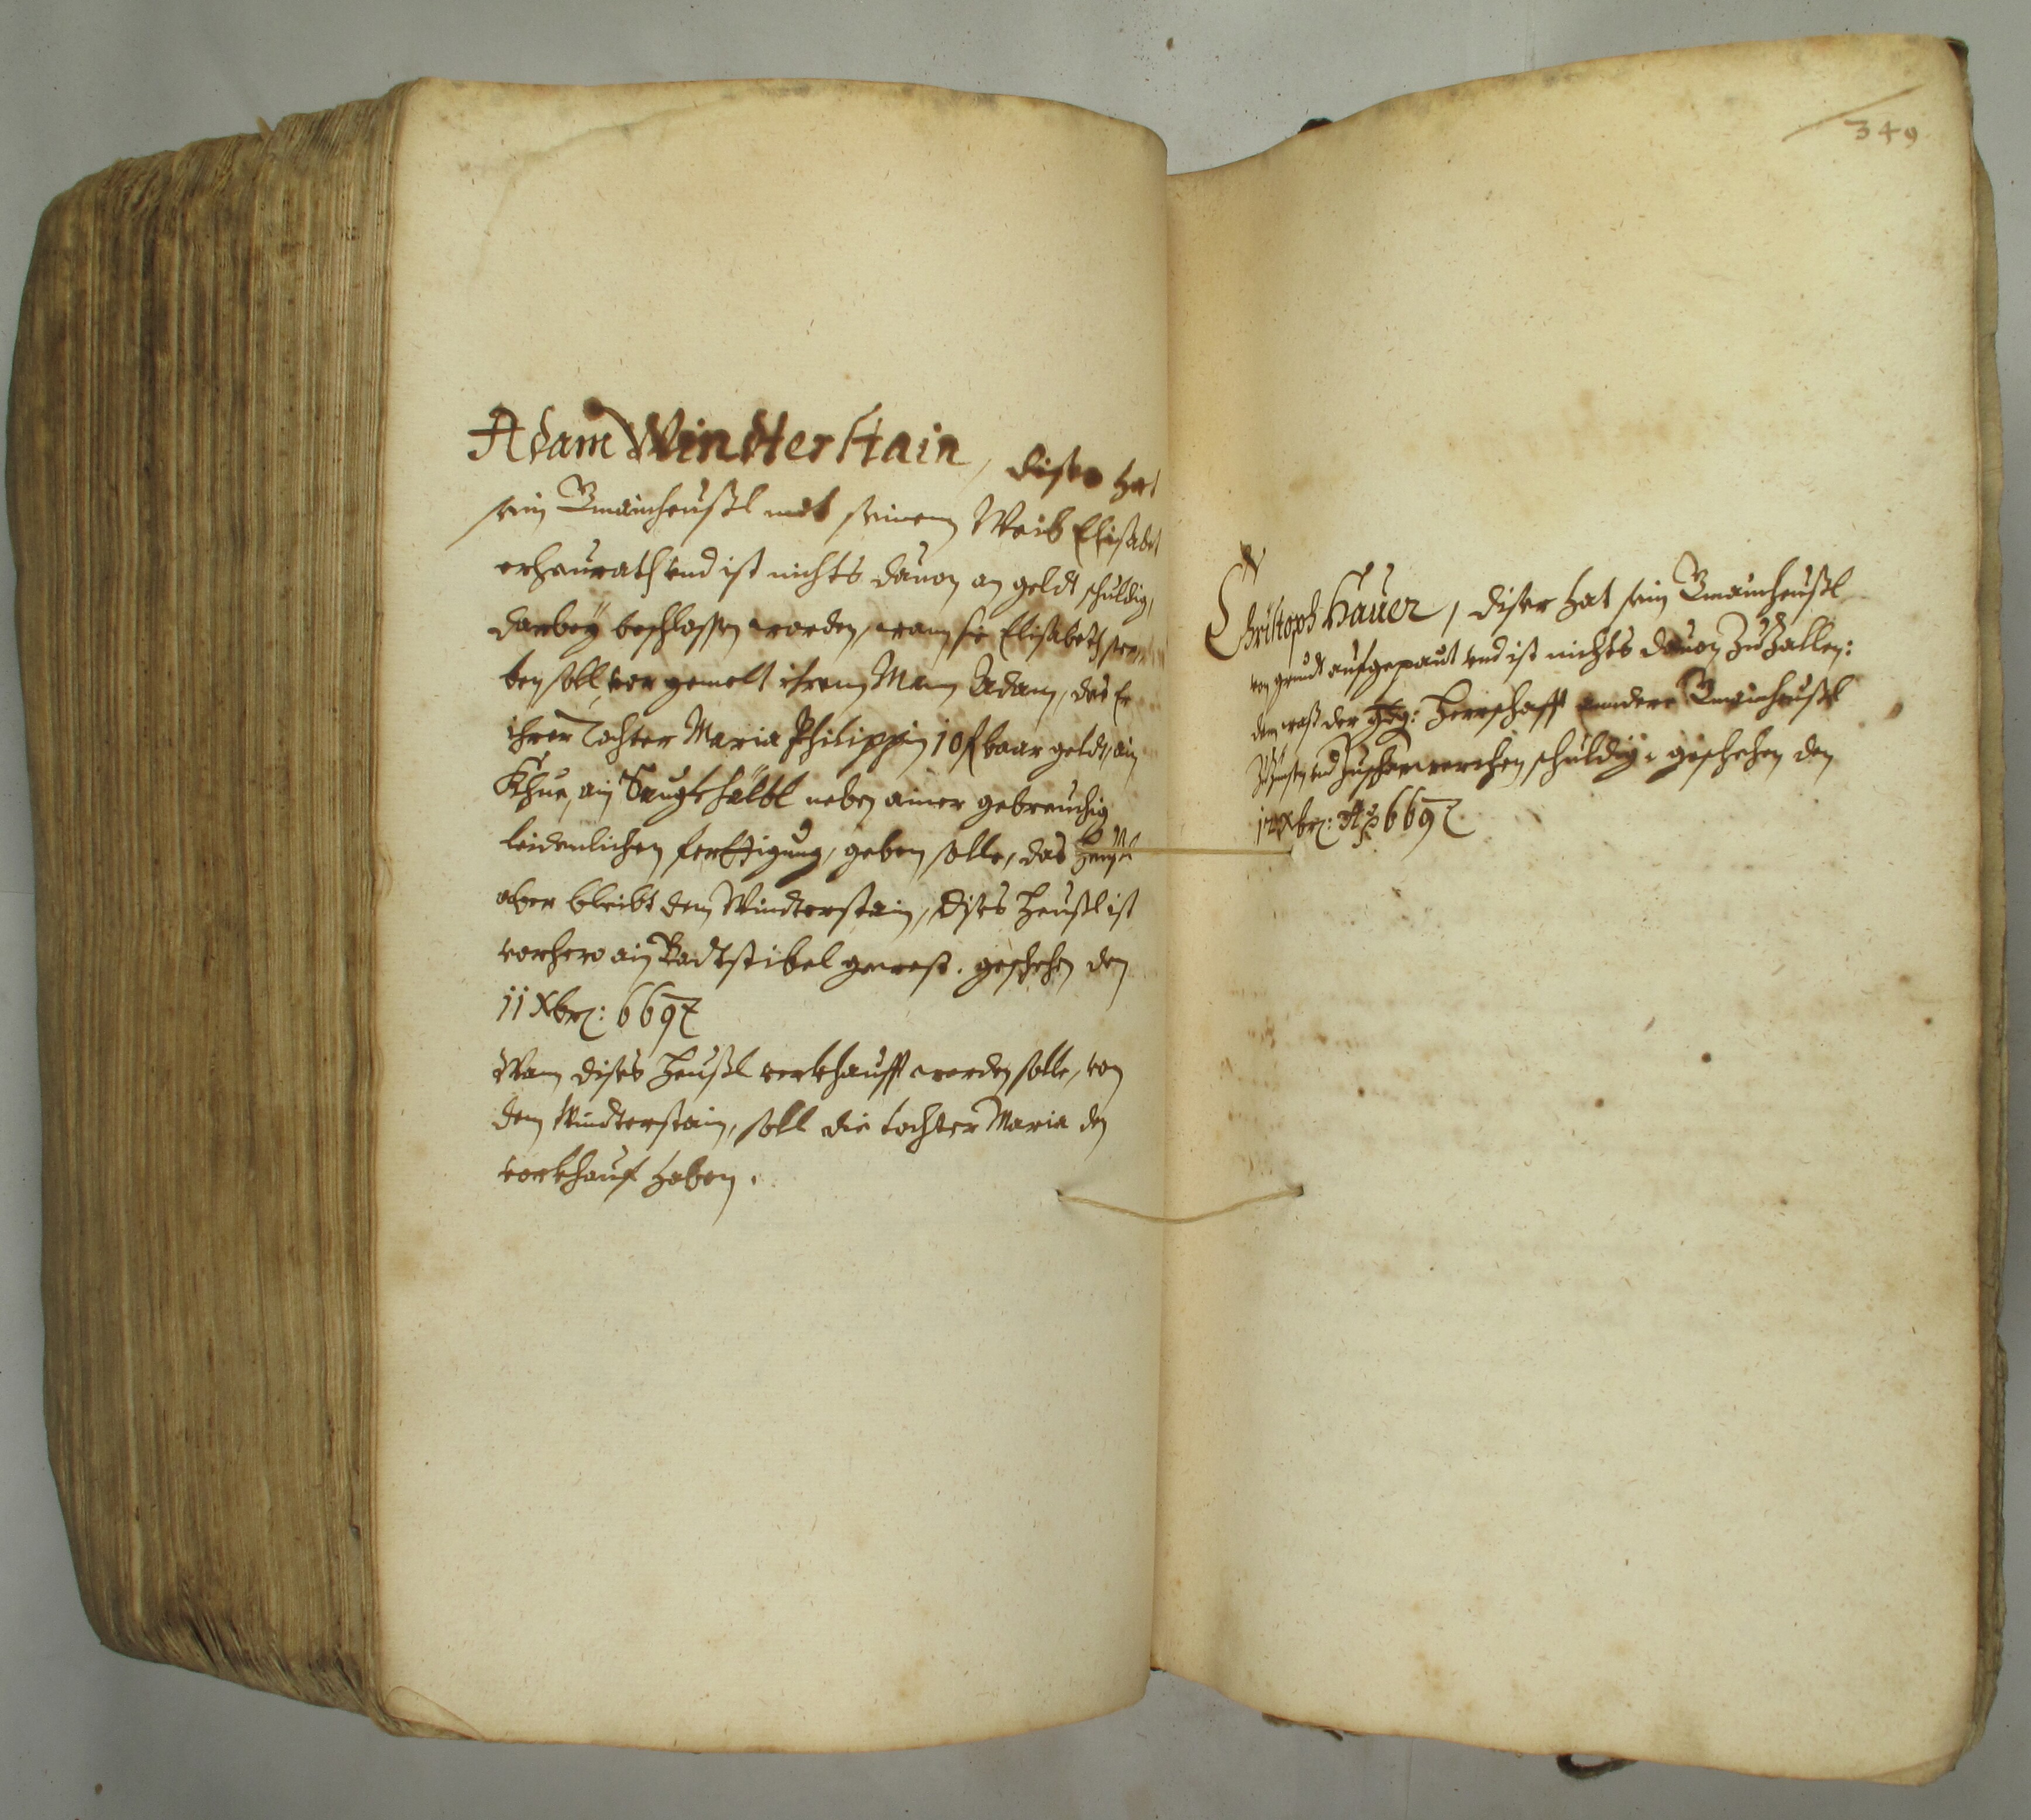 Adam Windterstain, diser hat
sein Gmainheußl mit seinem Weib Elisabet
erheurath vnd ist nichts dauon an geldt schuldig,
darbeÿ beschlossen worden, wann sie Elisabeth ster
ben soll vor gemelt ihrem Mann Adam, das Er
ihrer Tochter Maria Philippin 10 f baar geldt, ain
Khue, ain Saugkhälbl neben ainer gebreuchig
leidenlichen ferttigung, geben solle, das Heußl
aber bleibt dem Windterstain, dises Heußl ist
vorhero ain Badtstibel gewest. geschehen den
11 Xbr: 669
Wann dises Heußl verkhaufft werden solle, von
dem Windterstain, soll die tochter Maria den
vorkhauf haben.
349
Christoph Hauer, diser hat sein Gmainheußl
von grundt aufgepaut vnd ist nichts dauon Zu Zallen:
dem waß der Herrschafft andere Gmainheußl
Zu Zinsen vnd Zuthuen schuldig. geschehen den
Xbr: Ao 669